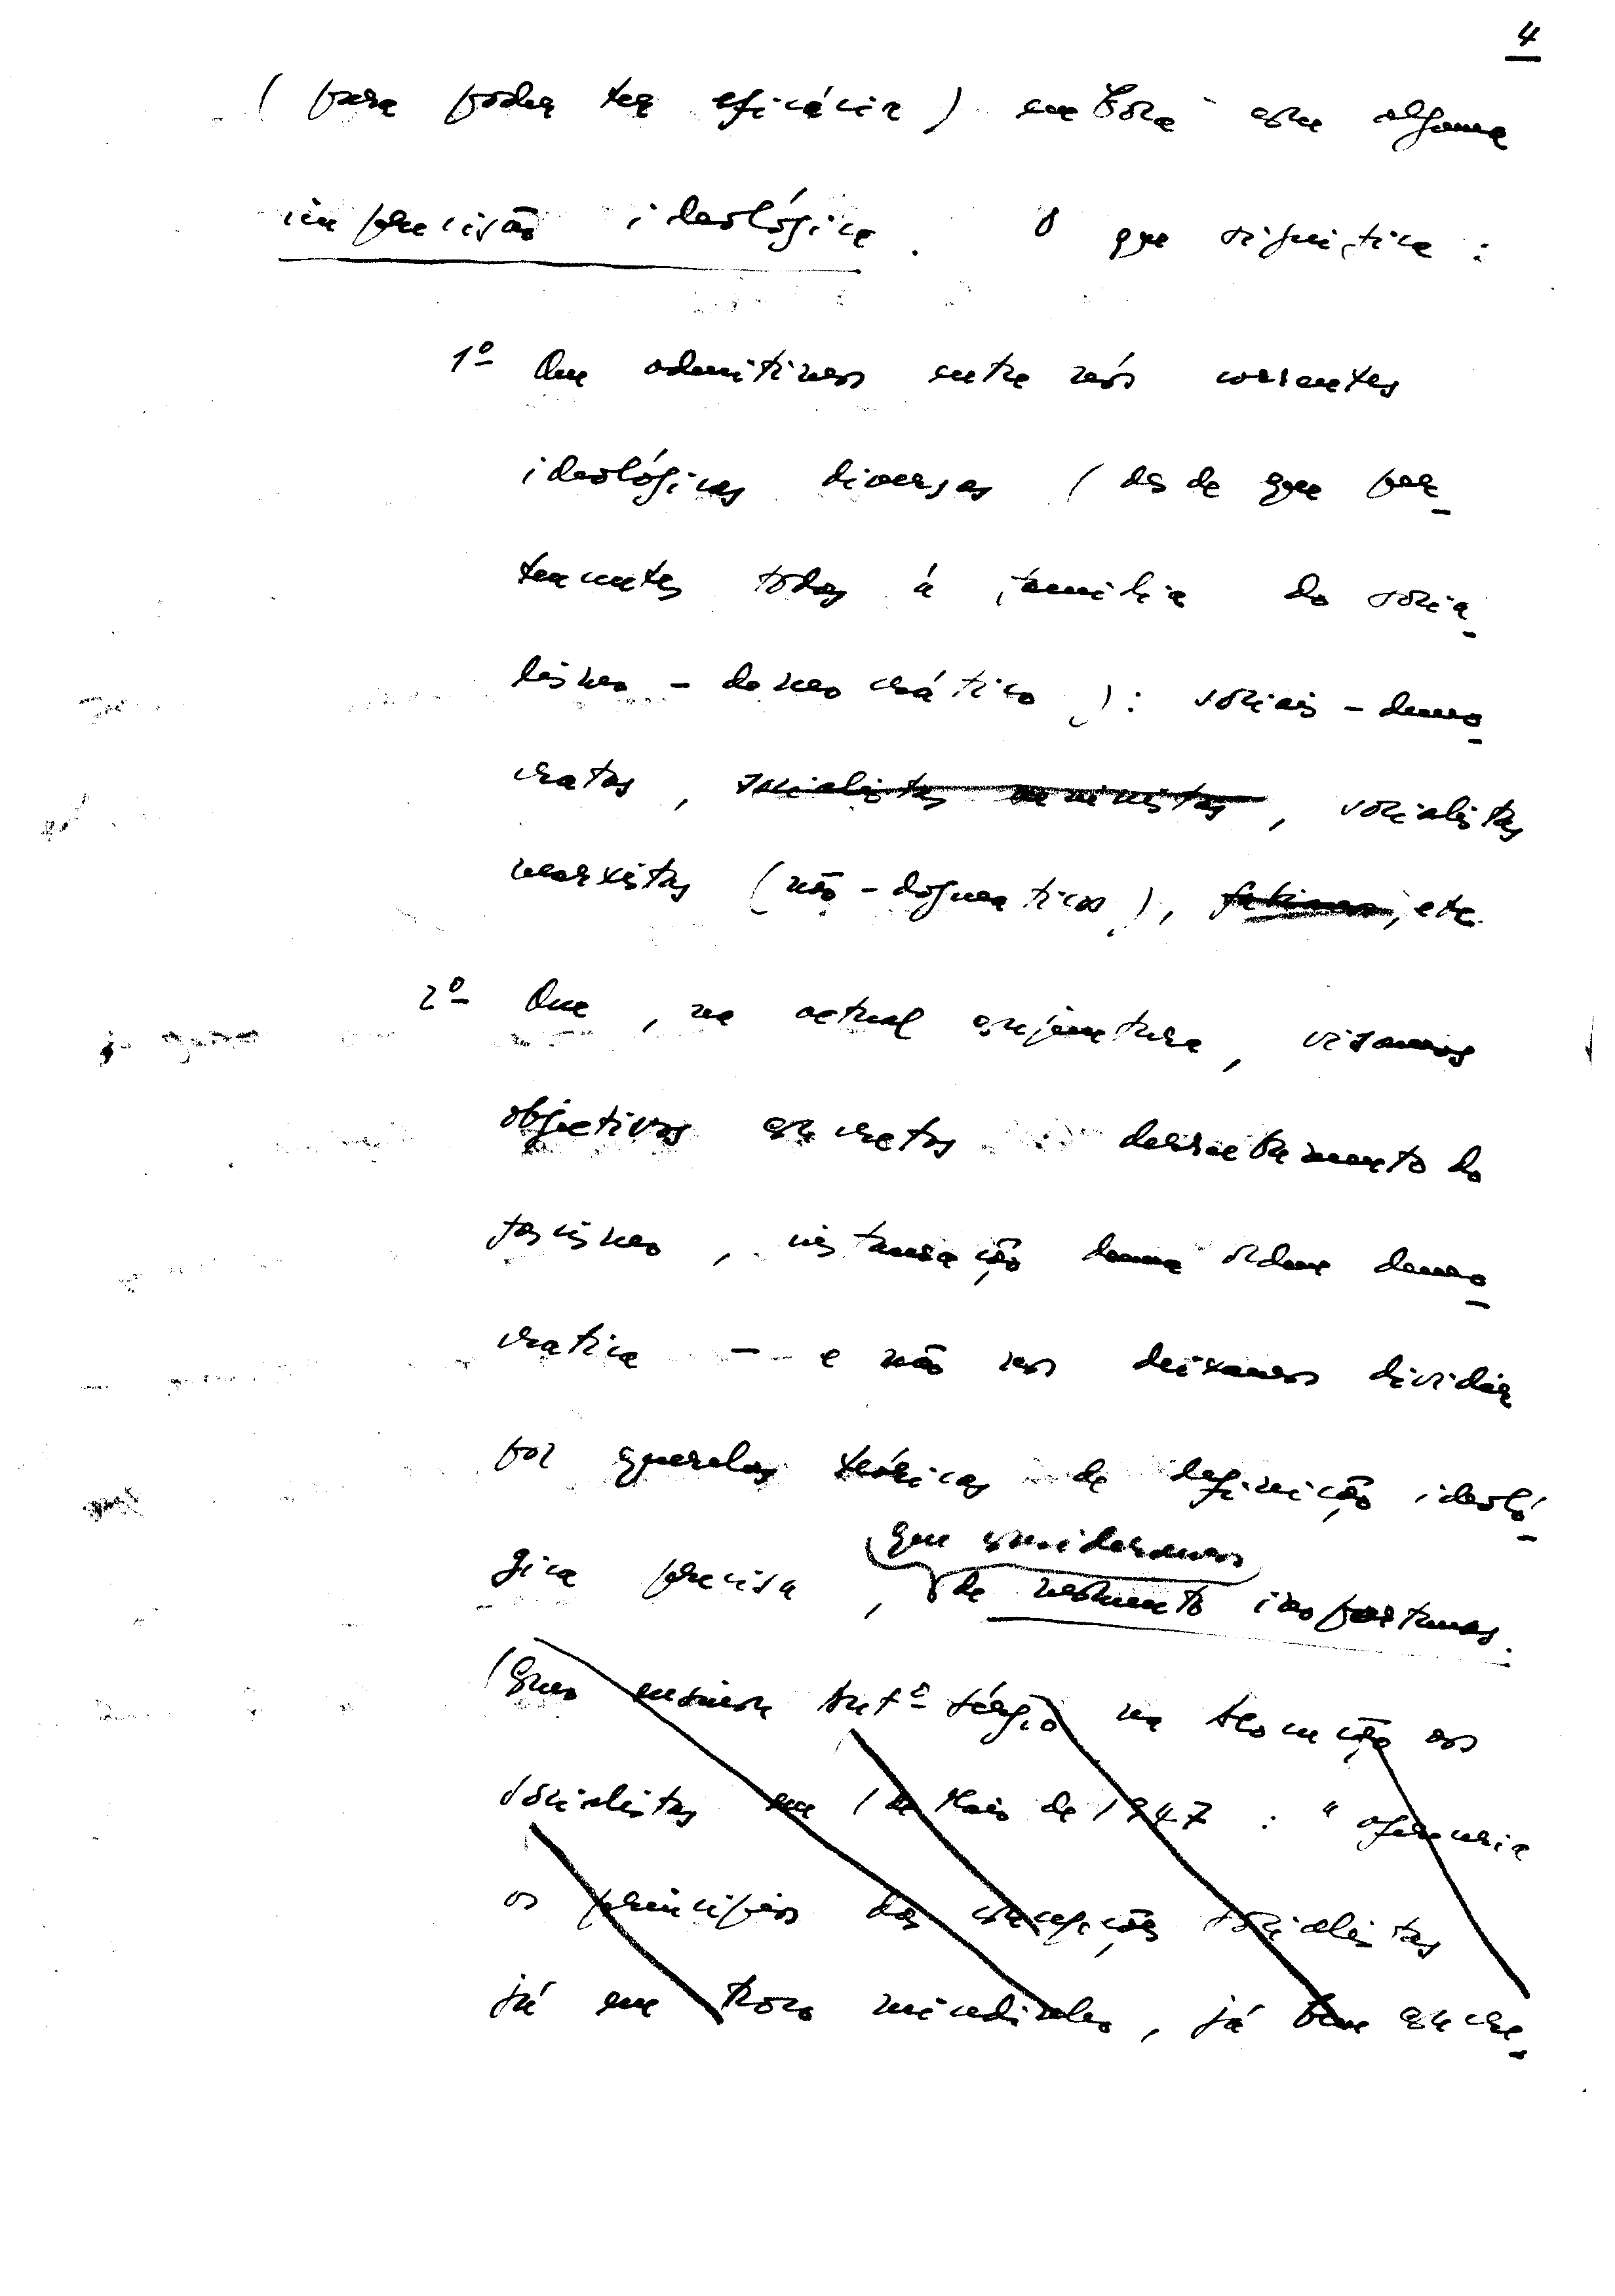 4
( para poder ter eficácia ) embora com alguma
imprecisão ideológica. O que significa :
1º Que admitimos entre nós correntes
ideológicas diversas ( desde que per-
tencentes todas à família do socia-
lismo - democrático ) : sociais - demo-
cratas, socialistas , socialistas
marxistas ( não - dogmáticos ), , etc.
2º Que , na actual conjuntura , visamos
objectivos concretos derrubamento do
fascismo , instauração duma ordem demo-
crática — e não nos deixamos dividir
por querelas teóricas de definição ideoló-
que consideramos
gica precisa , de momento inoportunas.
( Como Antº Sérgio na alocução aos
socialistas em 1 de Maio de 1947 : " oferecia
os princípios das concepções socialistas
já em troco miudinho, já bem concre-